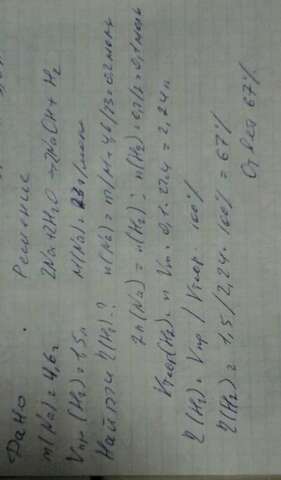 Дано
Решение
m(Na)=4,6г
2Na+2H2O→2NaOH+H2
Vпр(H2)=1,5л
M(Na)=23г/моль
Найти η(H2)-?
n(Na)=m/M=4,6/23=0,2моль
2n(Na)=n(H2); n(H2)=0,2/2=0,1моль
Vтеор(H2)=n·Vm=0,1·22,4=2,24л
η(H2)=Vпр/Vтеор·100%
η(H2)=1,5/2,24·100%=67%
Ответ 67%